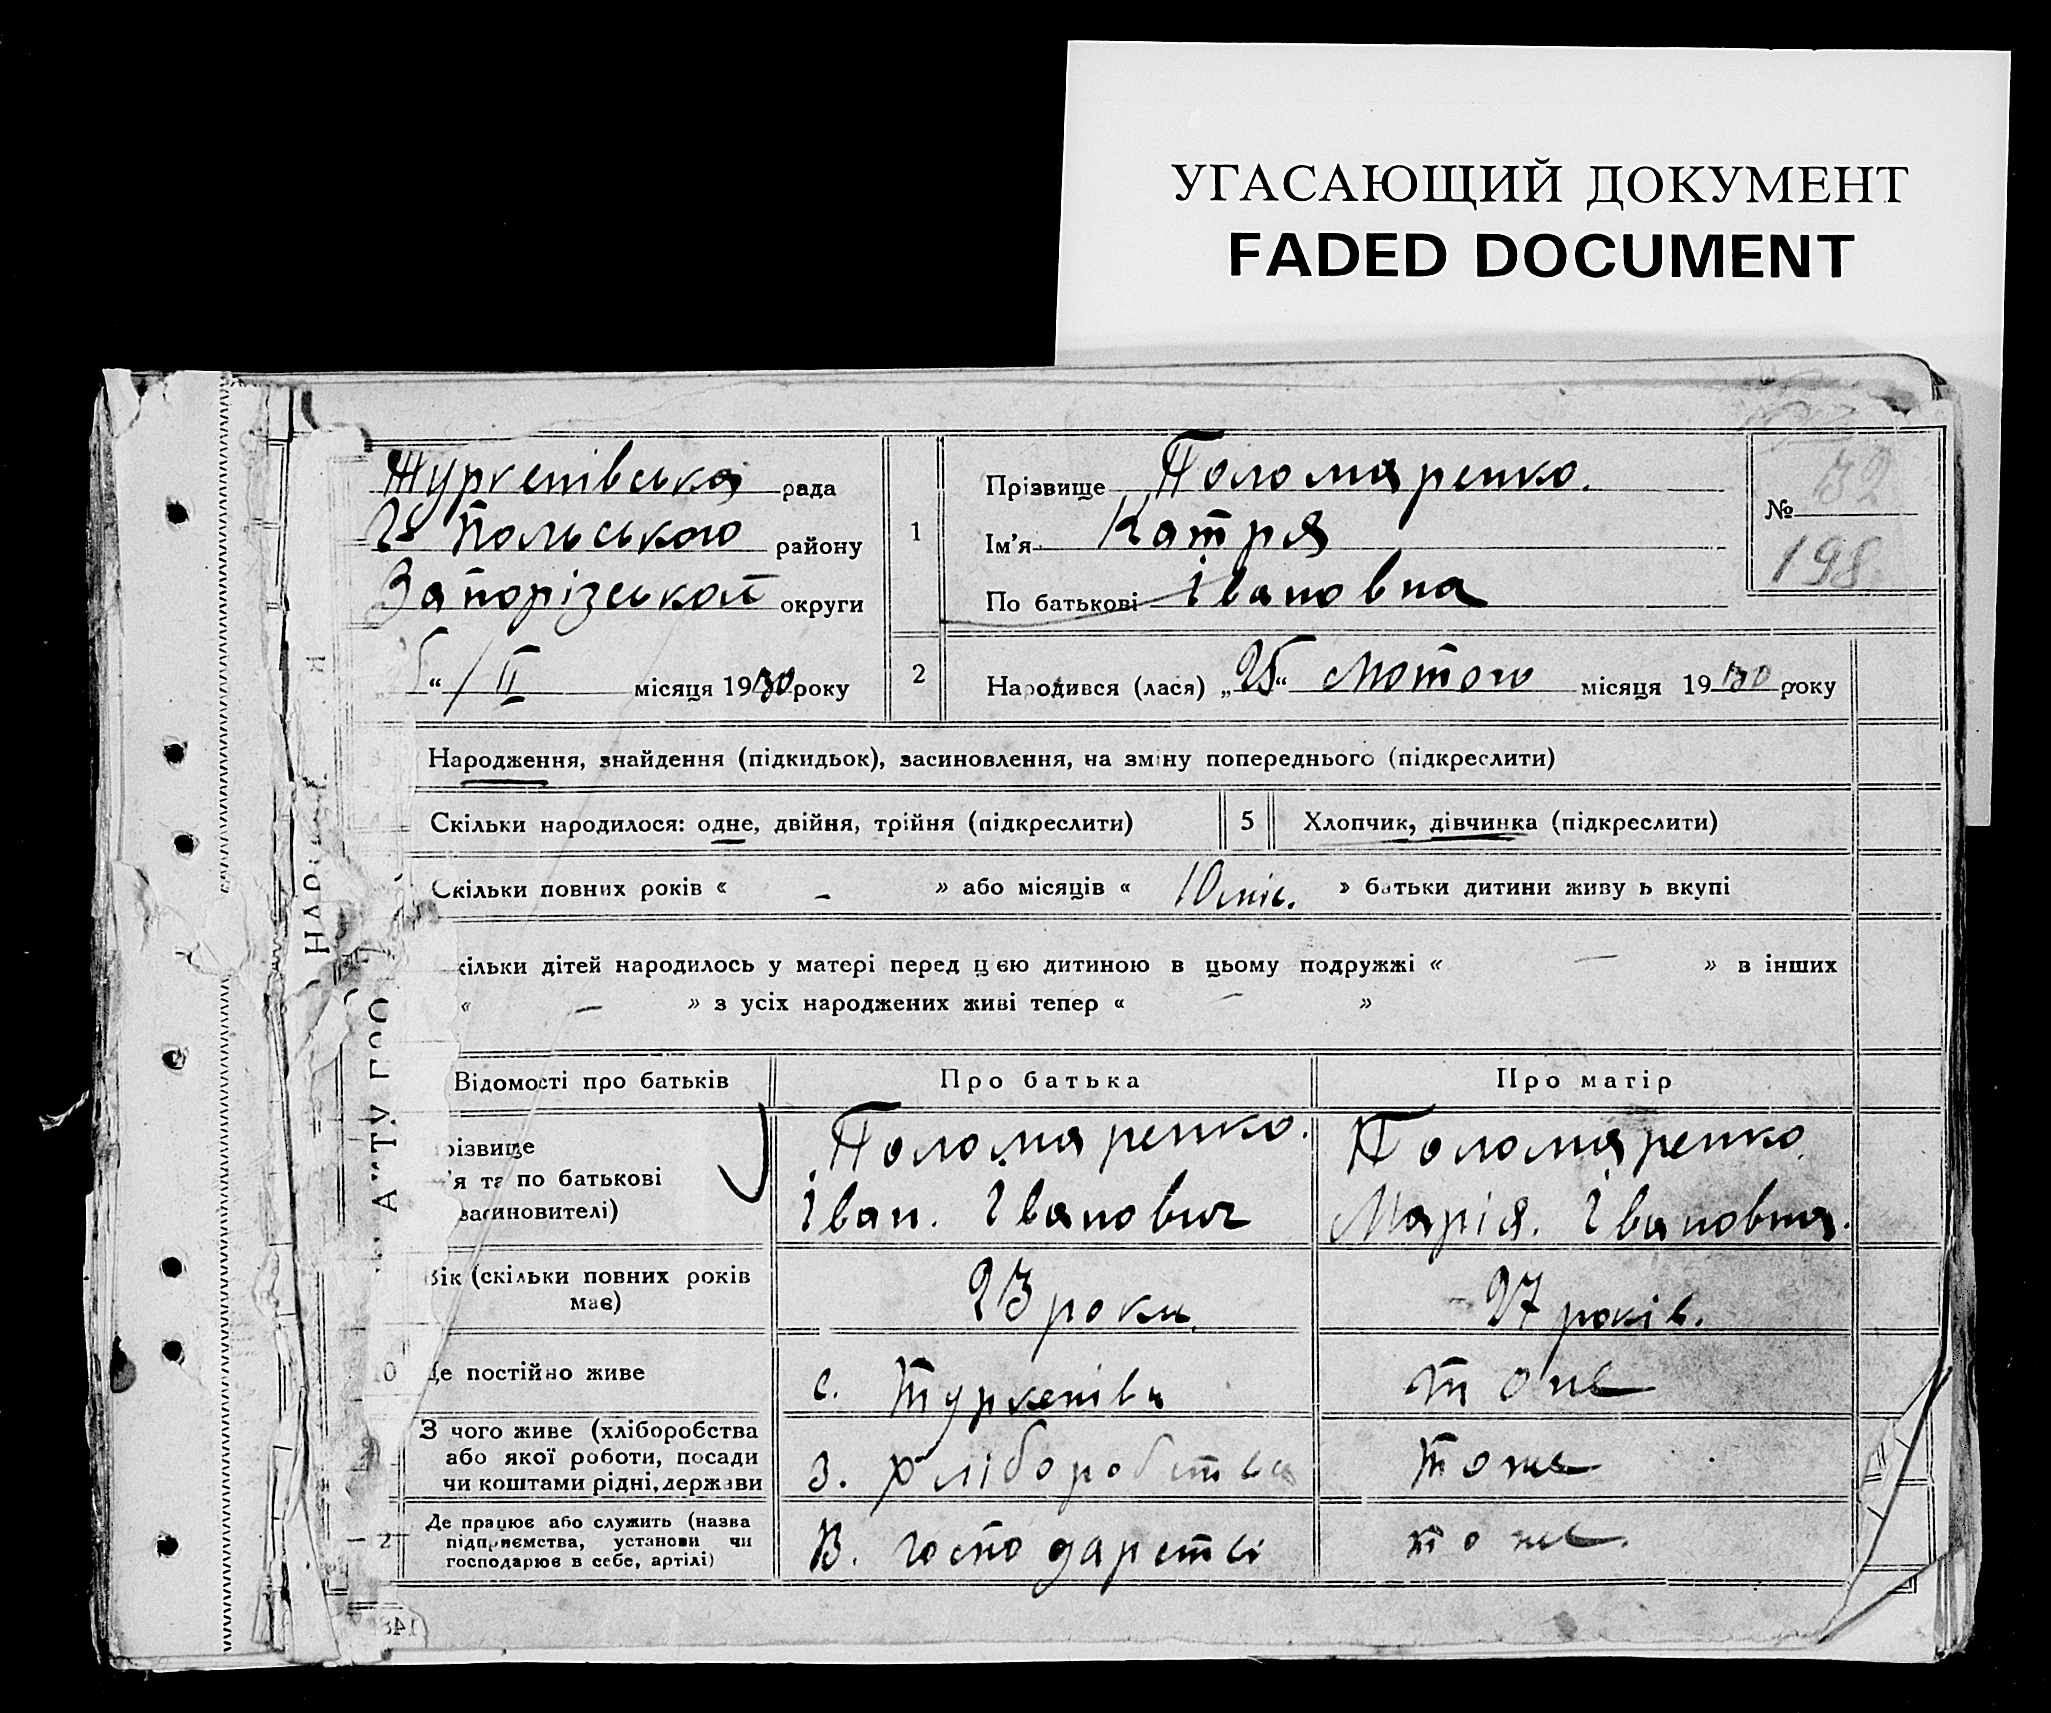 УГАСАЮЩИЙ ДОКУМЕНТ
FADED DOCUMENT
Туркенівська рада
Г-Польського району
Запорізької округи
“ / II місяця 1930 року
1
Прізвище Поломаренко.
Ім’я Катря
По батькові Івановна
№ 32
198
2
Народився (лася) „25“ Лютого місяця 1930 року
Народження, знайдення (підкидьок), засиновлення, на зміну попереднього (підкреслити)
Скільки народилося: одне, двійня, трійня (підкреслити)
5
Хлопчик, дівчинка (підкреслити)
Скільки повних років « - » або місяців « 10 міс. » батьки дитини живуть вкупі
кільки дітей народилось у матері перед цією дитиною в цьому подружжі « — » в інших
« — » з усіх народжених живі тепер « — »
Відомості про батьків
Про батька
Про матір
різвище
’я та по батькові
засиновителі)
Поломаренко.
Іван. Іванович
Поломаренко.
Марія. Івановна.
Вік (скільки повних років
має)
23 роки.
27 років.
Де постійно живе
с. Туркенівка
тоже
З чого живе (хліборобства
або якої роботи, посади
чи коштами рідні, держави
З. хліборобства
тоже
2
Де працює або служить (назва
підприємства, установи чи
господарює в себе, артілі)
В. господарстві
тоже.